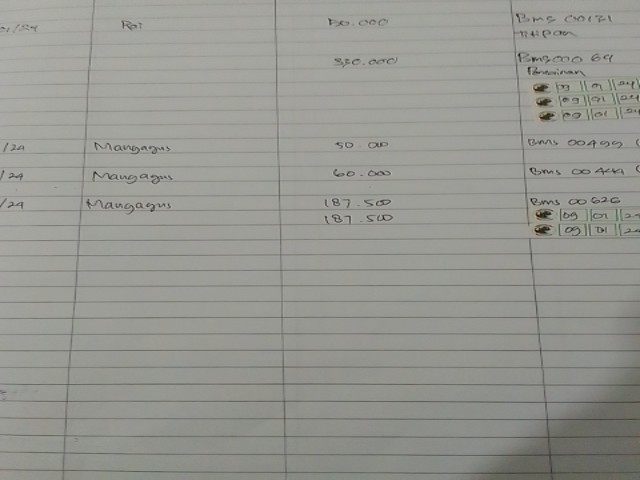 01/24 Roi 150.000 Bms 00121
titipan
350.000 Bms 000 69
| 09 | 01 | 24
| 09 | 01 | 24
| 09 | 01 | 24
/24 Mangagus 50.000 Bms 00499 (
/24 Mangagus 60.000 Bms 00444 (
/24 Mangagus 187.500 Bms 00626
187.500 | 09 | 01 | 24
| 09 | 01 | 24